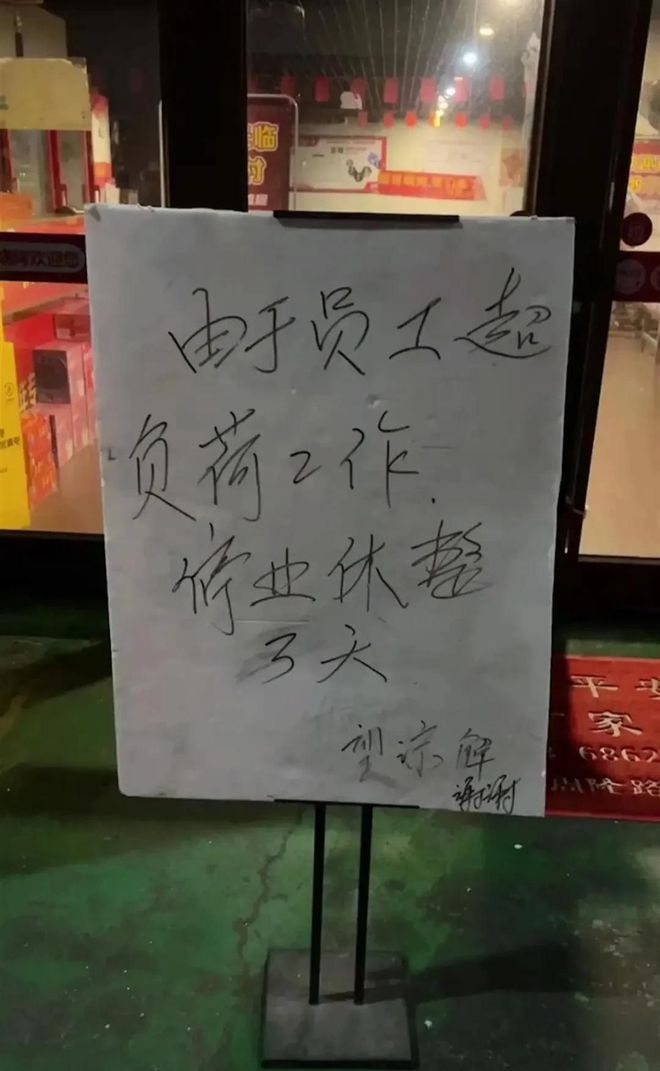 由于员工超
负荷工作.
停业休整
3天
望凉解
谢谢
欢迎您
平安
家
6862
隆路